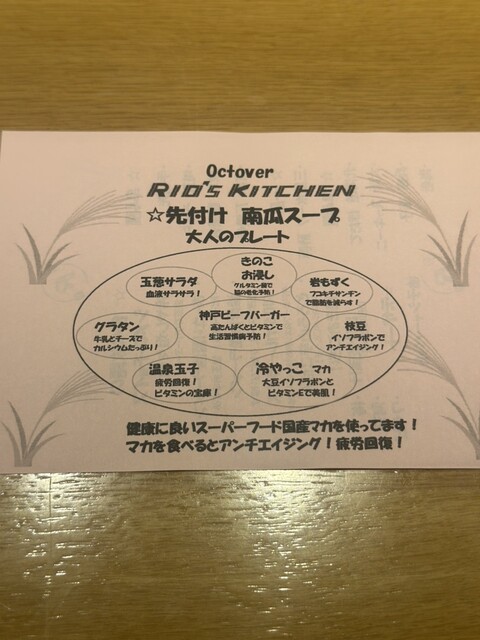 Octover
RIO'S KITCHEN
☆先付け 南瓜スープ
大人のプレート
きのこ
お浸し
グルタミン酸で
脳の老化予防！
玉葱サラダ
血液サラサラ！
岩もずく
フコキサンチン
で脂肪を減らす！
神戸ビーフバーガー
高たんぱくとビタミンで
生活習慣病予防！
グラタン
牛乳とチーズで
カルシウムたっぷり！
枝豆
イソフラボンで
アンチエイジング！
温泉玉子
疲労回復！
ビタミンの宝庫！
冷やっこ マカ
大豆イソフラボンと
ビタミンEで美肌！
健康に良いスーパーフード国産マカを使ってます！
マカを食べるとアンチエイジング！疲労回復！